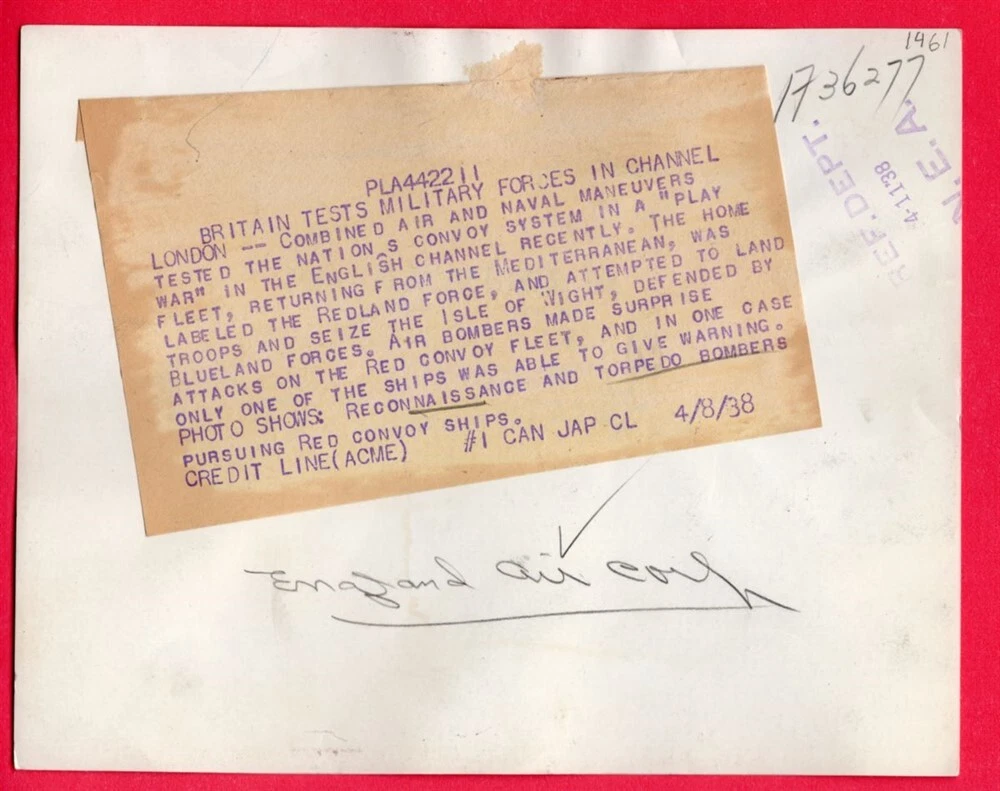 1461
1736277
REF. DEPT.
4-11'38
N.E.A.
PLA442211
BRITAIN TESTS MILITARY FORCES IN CHANNEL
LONDON -- COMBINED AIR AND NAVAL MANEUVERS
TESTED THE NATION,S CONVOY SYSTEM IN A "PLAY
WAR" IN THE ENGLISH CHANNEL RECENTLY. THE HOME
FLEET, RETURNING FROM THE MEDITERRANEAN, WAS
LABELED THE REDLAND FORCE, AND ATTEMPTED TO LAND
TROOPS AND SEIZE THE ISLE OF WIGHT, DEFENDED BY
BLUELAND FORCES. AIR BOMBERS MADE SURPRISE
ATTACKS ON THE RED CONVOY FLEET, AND IN ONE CASE
ONLY ONE OF THE SHIPS WAS ABLE TO GIVE WARNING.
PHOTO SHOWS: RECONNAISSANCE AND TORPEDO BOMBERS
PURSUING RED CONVOY SHIPS.
CREDIT LINE(ACME) #1 CAN JAP CL 4/8/38
England Air Corp